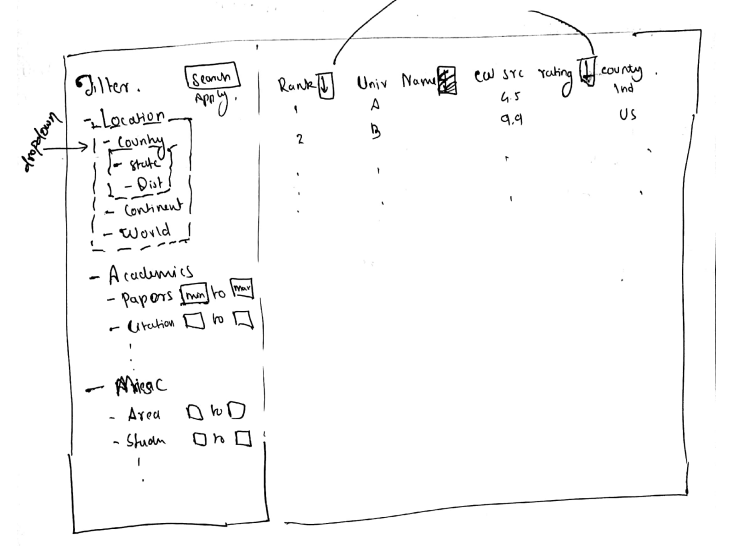 Filter.
Search
Apply.
- Location
dropdown
- Country
- State
- Dist
- Continent
- World
- Academics
- Papers min to max
- Citation to
- Misc
- Area to
- Studn to
Rank ↓ Univ Name rating ↓ country.
1 A 4.5 Ind
2 B 9.9 US